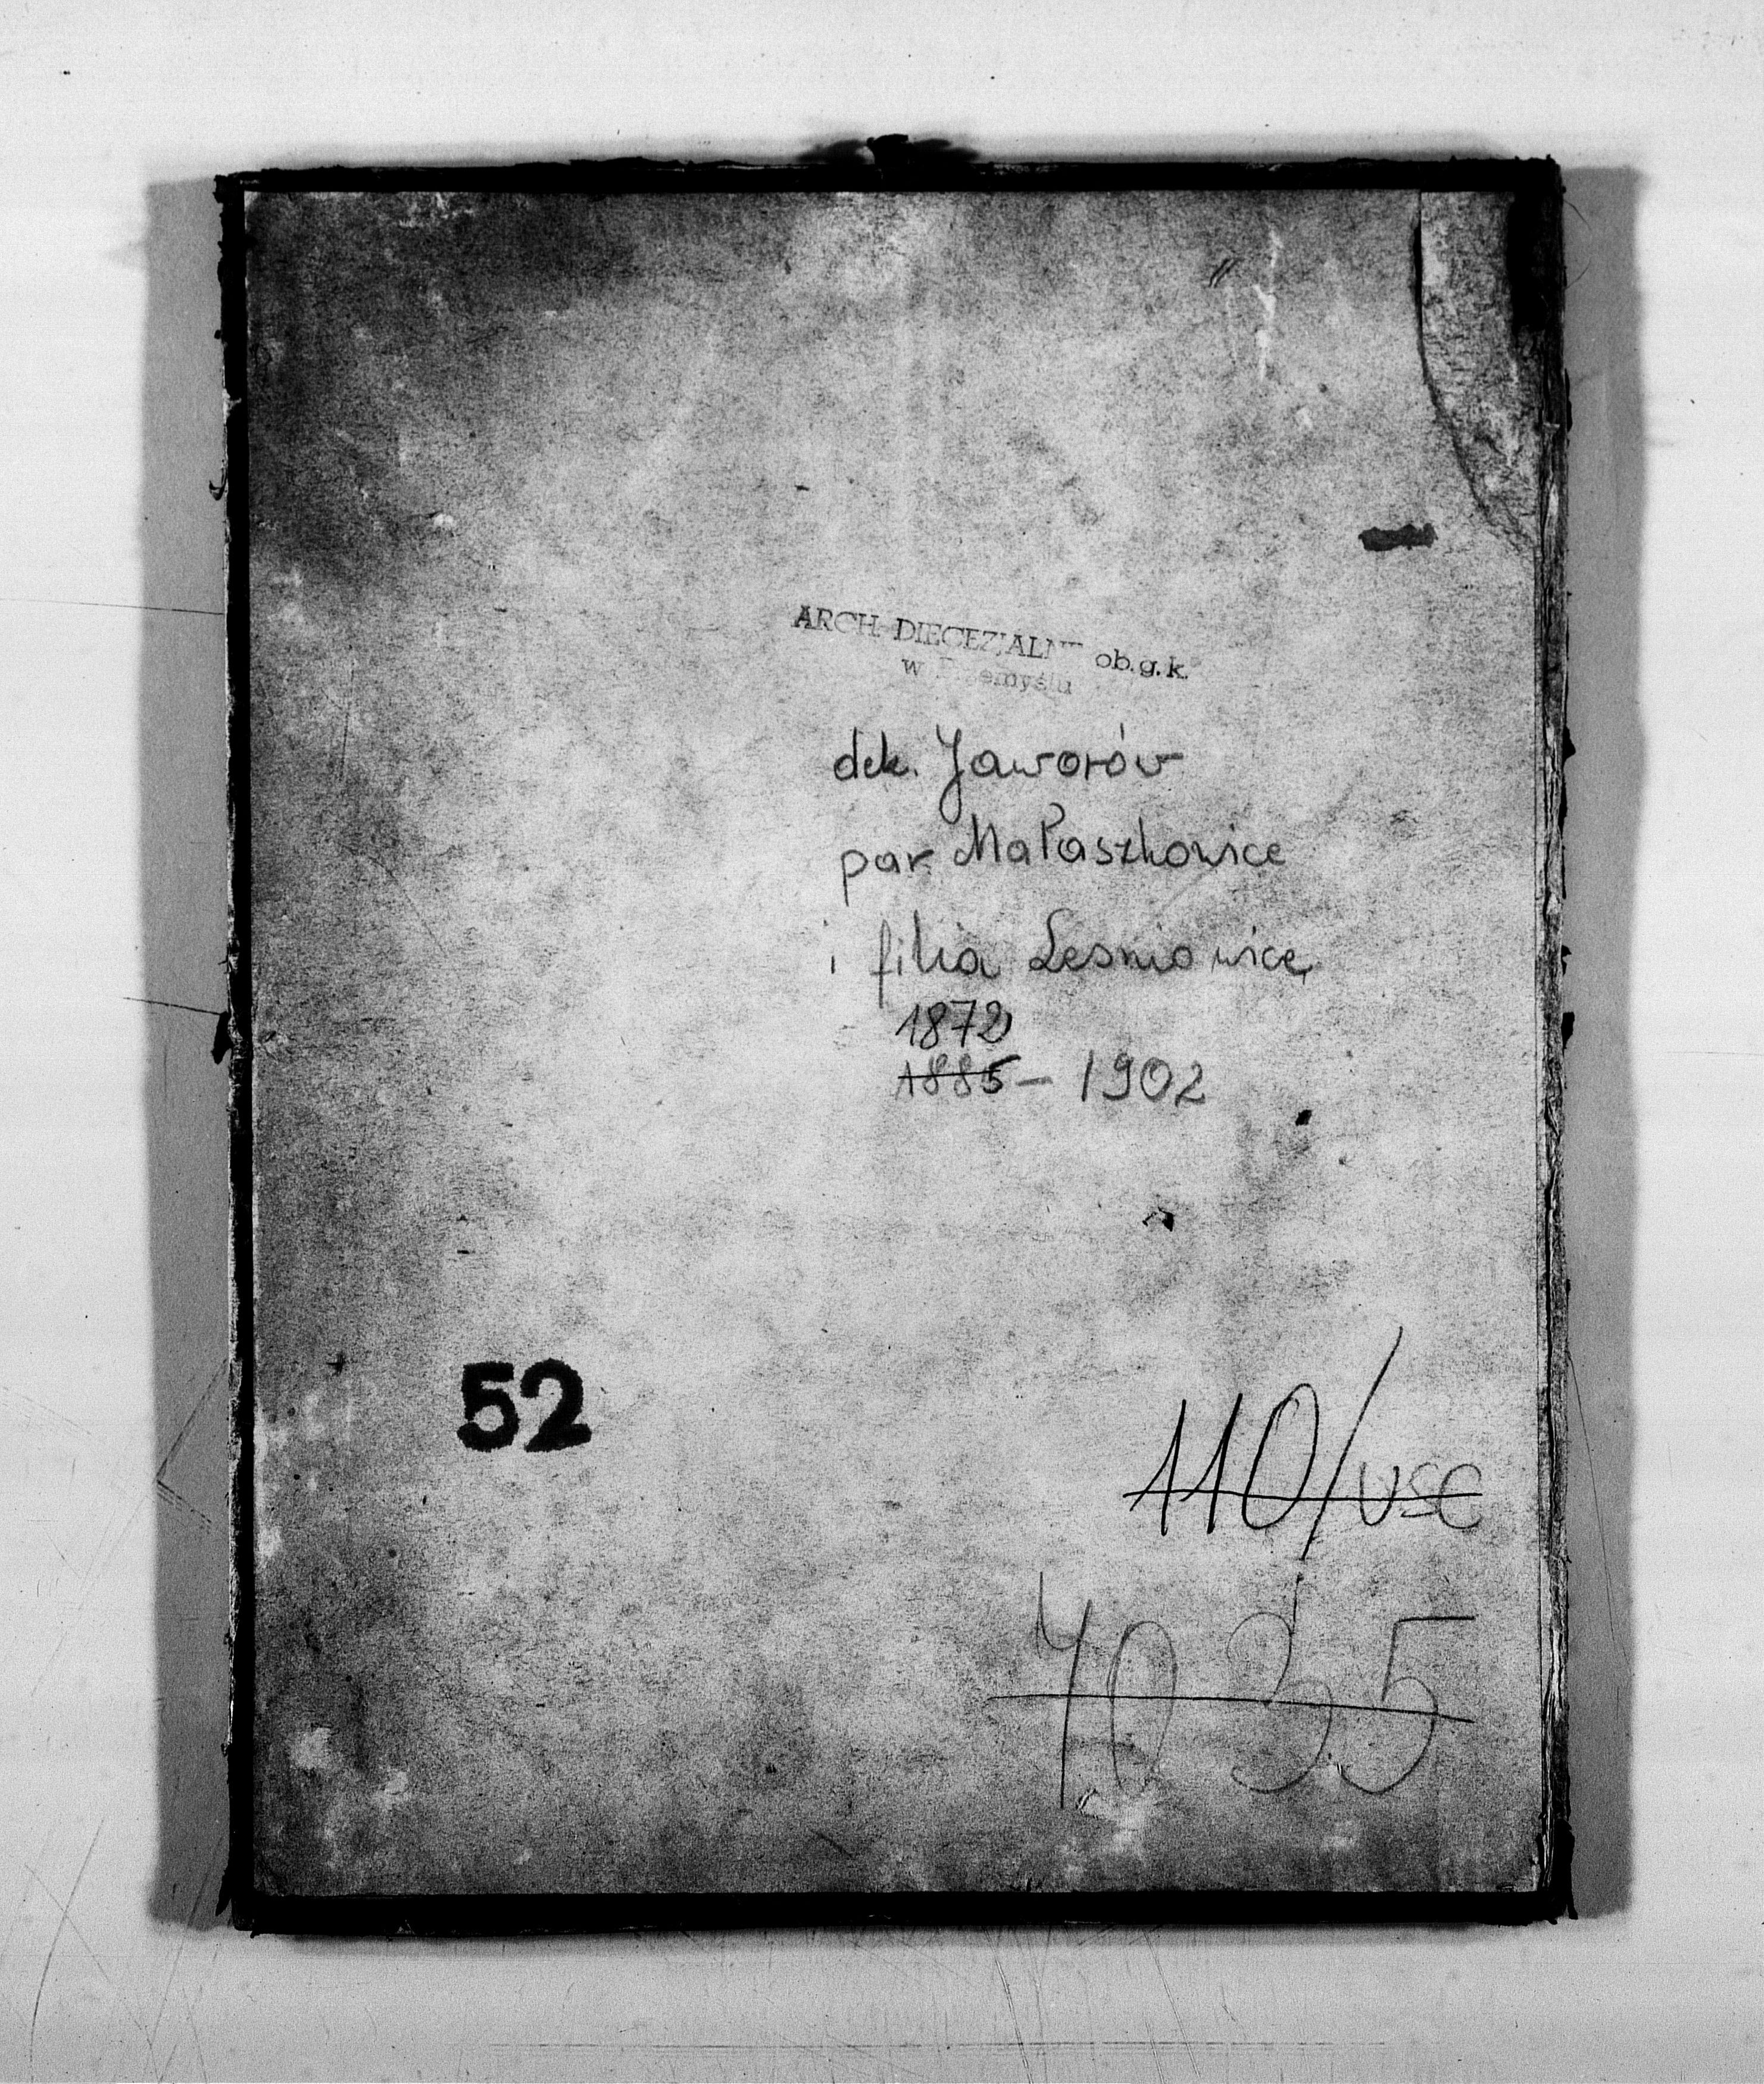 ARCH. DIECEZJALNE ob.g.k.
w Przemyślu
dek. Jaworów
par. Małaszkowice
i filia Lesniowice
1872
1885 – 1902
52
110/USC
4035